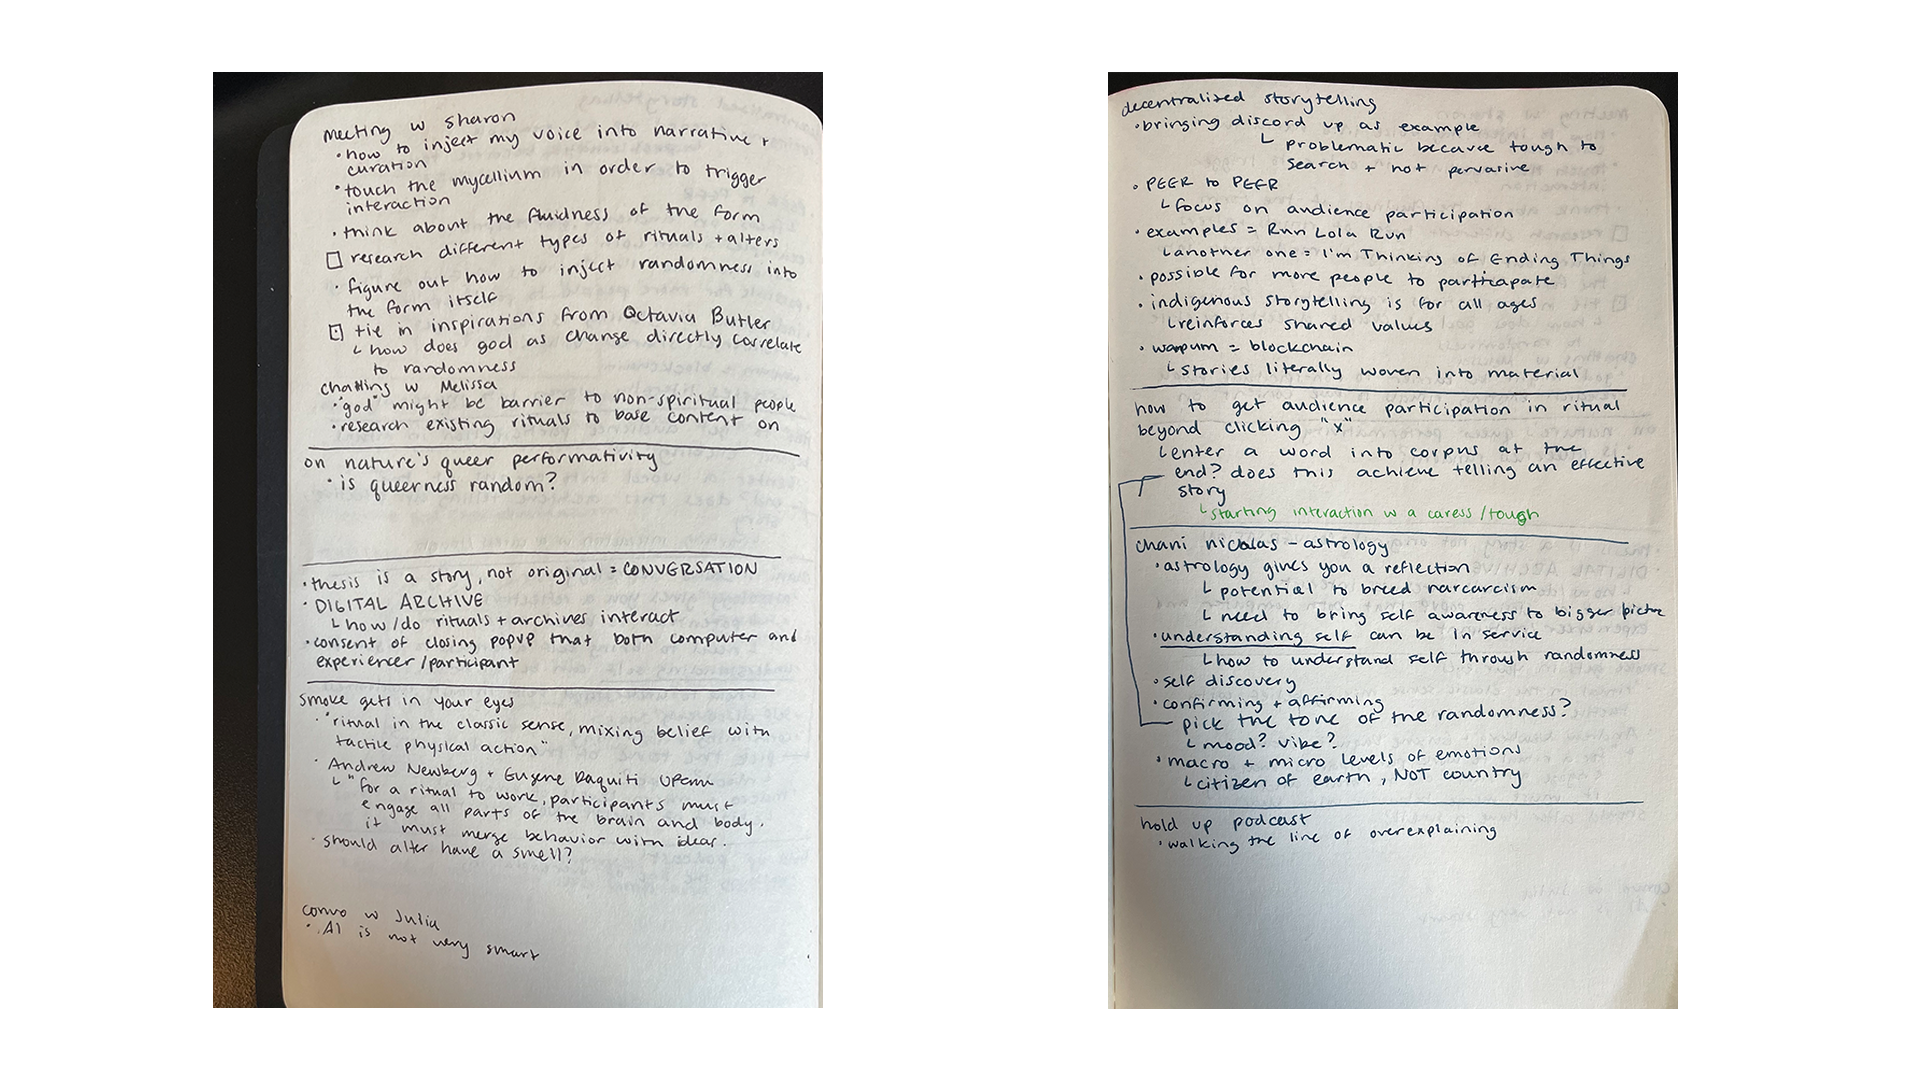 meeting w sharon
• how to inject my voice into narrative +
curation
• touch the mycellium in order to trigger
interaction
• think about the fluidness of the form
□ research different types of rituals + alters
• figure out how to inject randomness into
the form itself
□ tie in inspirations from Octavia Butler
└ how does god as change directly correlate
to randomness
chatting w Melissa
• "god" might be barrier to non-spiritual people
• research existing rituals to base content on
on nature's queer performativity
• is queerness random?
• thesis is a story, not original = CONVERSATION
• DIGITAL ARCHIVE
└ how/do rituals + archives interact
• consent of closing popup that both computer and
experiencer/participant
smoke gets in your eyes
• "ritual in the classic sense, mixing belief with
tactile physical action"
• Andrew Newberg + Eugene Daquiti
└ "for a ritual to work, participants must
engage all parts of the brain and body.
it must merge behavior with ideas.
• should alter have a smell?
convo w Julia
• AI is not very smart
decentralized storytelling
• bringing discord up as example
└ problematic because tough to
search + not pervasive
• PEER to PEER
└ focus on audience participation
• examples = Run Lola Run
└ another one = I'm Thinking of Ending Things
• possible for more people to participate
• indigenous storytelling is for all ages
└ reinforces shared values
• wampum = blockchain
└ stories literally woven into material
how to get audience participation in ritual
beyond clicking "x"
└ enter a word into corpus at the
end? does this achieve telling an effective
story
└ starting interaction w a caress/tough
chani nicolas - astrology
• astrology gives you a reflection
└ potential to breed narcarcism
└ need to bring self awareness to bigger picture
• understanding self can be in service
└ how to understand self through randomness
• self discovery
• confirming + affirming
pick the tone of the randomness?
└ mood? vibe?
• macro + micro levels of emotions
└ citizen of earth, NOT country
hold up podcast
• walking the line of overexplaining